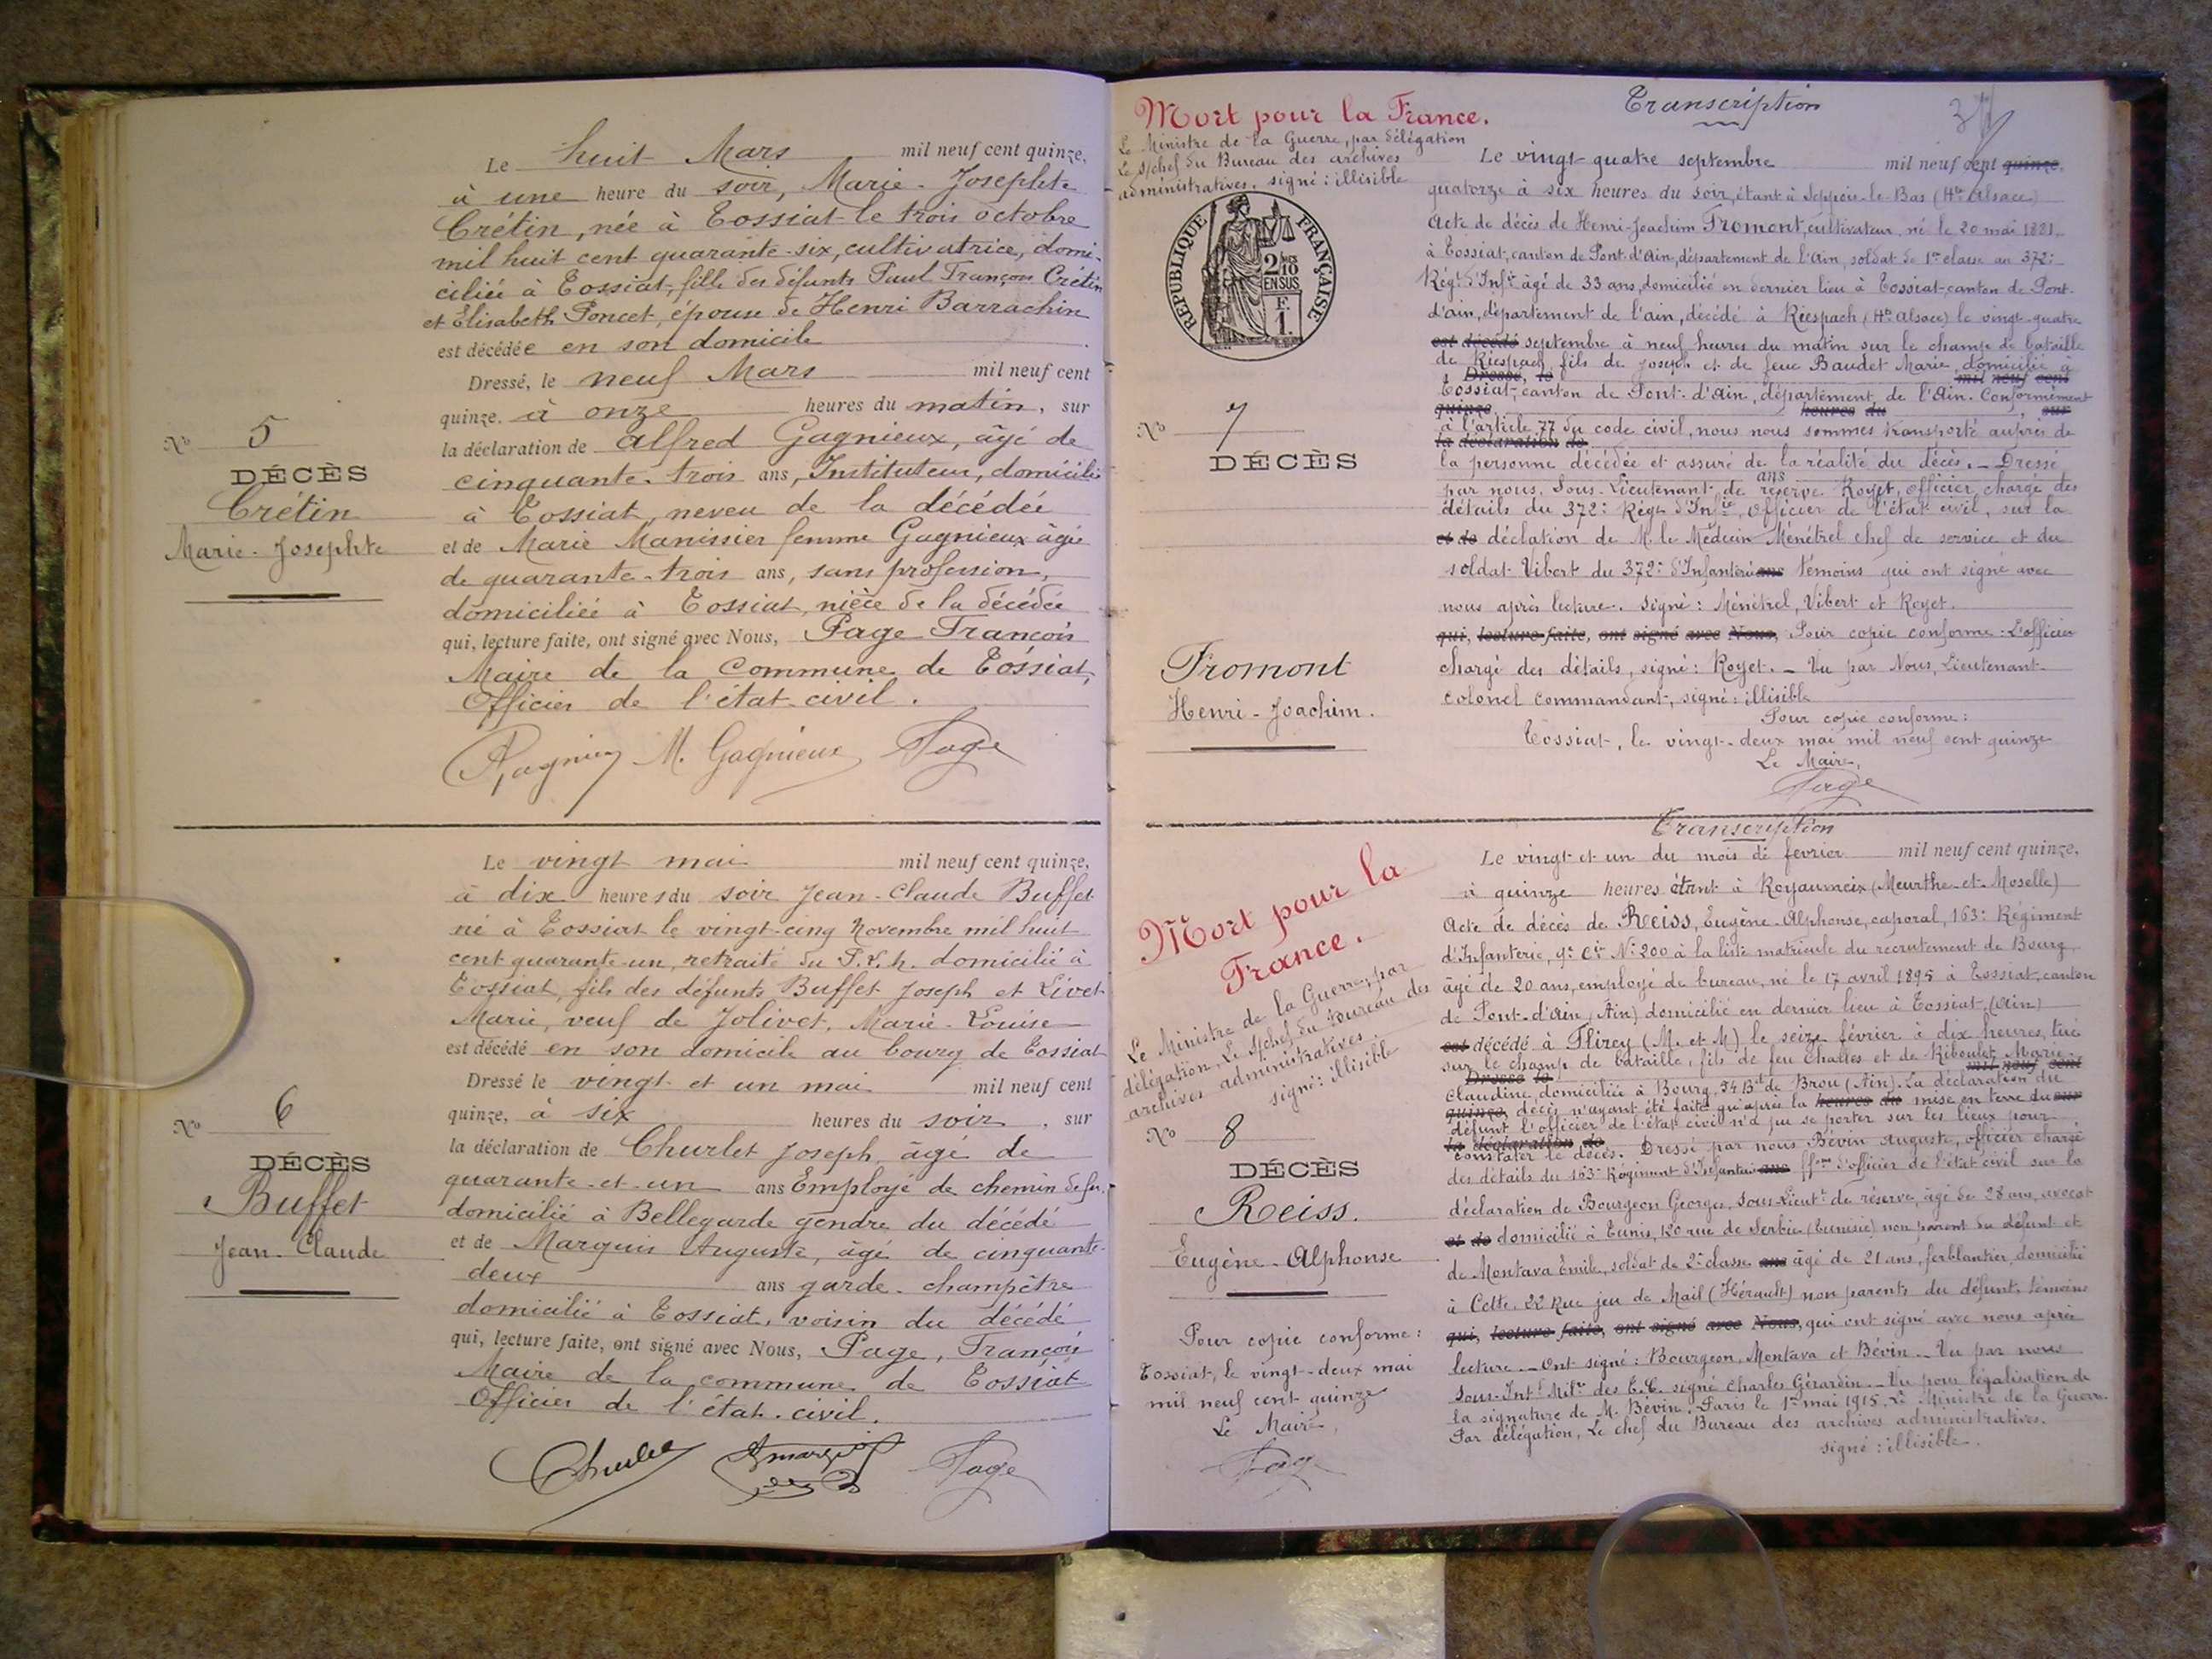 Le huit Mars mil neuf cent quinze,
à une heure du soir, Marie-Josephte
Crétin, née à Tossiat le trois octobre
mil huit cent quarante-six, cultivatrice, domi-
ciliée à Tossiat, fille des défunts Paul François Crétin
et Elisabeth Poncet, épouse de Henri Barrachin
est décédée en son domicile
Dressé, le neuf Mars mil neuf cent
quinze. à onze heures du matin, sur
la déclaration de Alfred Gagnieux, âgé de
cinquante-trois ans, Instituteur, domicilié
à Tossiat, neveu de la décédée
et de Marie Manissier femme Gagnieux âgée
de quarante-trois ans, sans profession,
domiciliée à Tossiat, nièce de la décédée
qui, lecture faite, ont signé avec Nous, Page François
Maire de la Commune de Tossiat,
Officier de l'état-civil.
M. Gagnieux Page
No 5
DÉCÈS
Crétin
Marie-Josephte
Le vingt mai mil neuf cent quinze,
à dix heures du soir Jean-Claude Buffet
né à Tossiat le vingt-cinq Novembre mil huit
cent quarante-un, retraité du P.L.M. domicilié à
Tossiat, fils des défunts Buffet Joseph et Livet
Marie, veuf de Jolivet, Marie-Louise
est décédé en son domicile au bourg de Tossiat
Dressé le vingt et un mai mil neuf cent
quinze, à six heures du soir, sur
la déclaration de Churlet Joseph âgé de
quarante-et-un ans Employé de chemin de fer
domicilié à Bellegarde gendre du décédé
et de Marquis Auguste, âgé de cinquante-
deux ans garde-champêtre
domicilié à Tossiat, voisin du décédé
qui, lecture faite, ont signé avec Nous, Page, François
Maire de la commune de Tossiat
Officier de l'état-civil.
Churlet Page
No 6
DÉCÈS
Buffet
Jean-Claude
Mort pour la France.
Le Ministre de la Guerre, par délégation
Le s/chef du Bureau des archives
administratives. signé: illisible
RÉPUBLIQUE FRANÇAISE
2/10 EN SUS
F 1.
No 7
DÉCÈS
Fromont
Henri-Joachim.
Transcription
Le vingt-quatre septembre mil neuf cent quinze,
quatorze à six heures du soir, étant à Seppois-le-Bas (Hte Alsace)
Acte de décès de Henri-Joachim Fromont, cultivateur, né le 20 mai 1881
à Tossiat, canton de Pont-d'Ain, département de l'Ain, soldat de 1re classe au 372e
Régt d'Infie âgé de 33 ans, domicilié en dernier lieu à Tossiat, canton de Pont-
d'ain, département de l'ain, décédé à Riespach (Hte Alsace) le vingt-quatre
est décédé septembre à neuf heures du matin sur le champ de bataille
de Riespach, fils de Joseph et de feue Baudet Marie, domicilié à
Dressé, le mil neuf cent
Tossiat, canton de Pont-d'Ain, département, de l'Ain. Conformément
quinze, heures du sur
à l'article 77 du code civil, nous nous sommes transporté auprès de
la déclaration de
la personne décédée et assuré de la réalité du décès. — Dressé
par nous, Sous-Lieutenant de réserve Royet, officier chargé des
ans
détails du 372e Régt d'Infie, Officier de l'état civil, sur la
et de déclation de M. le Médecin Ménétrel chef de service et du
soldat Vibert du 372e d'Infanterie ans témoins qui ont signé avec
nous après lecture. Signé: Ménétrel, Vibert et Royet.
qui, lecture faite, ont signé avec Nous, Pour copie conforme: L'officier
chargé des détails, signé: Royet. — Vu par Nous, Lieutenant-
Colonel Commandant, signé: illisible
Pour copie conforme:
Tossiat, le vingt-deux mai mil neuf cent quinze
Le Maire,
Page
Mort pour la
France.
Le Ministre de la Guerre, par
délégation, Le s/chef du Bureau des
archives administratives
signé: illisible
No 8
DÉCÈS
Reiss.
Eugène-Alphonse
Pour copie conforme:
Tossiat, le vingt-deux mai
mil neuf cent quinze
Le Maire,
Page
Transcription
Le vingt et un du mois de fevrier mil neuf cent quinze,
à quinze heures étant à Royaumeix (Meurthe-et-Moselle)
Acte de décès de Reiss, Eugène-Alphonse, caporal, 163e Régiment
d'Infanterie, 9e Cie No 200 à la liste matricule du recrutement de Bourg
âgé de 20 ans, employé de bureau, né le 17 avril 1895 à Tossiat, canton
de Pont-d'Ain (Ain) domicilié en dernier lieu à Tossiat (Ain)
est décédé à Flirey (M. et M) le seize février à dix heures, tué
sur le champ de bataille, fils de feu Charles et de Riboulet Marie-
Dressé le mil neuf cent
Claudine, domiciliée à Bourg, 34 Bd de Brou (Ain). La déclaration du
quinze, décès n'ayant été faite qu'après la heures du mise en terre du sur
défunt, l'officier de l'état civil n'a pu se porter sur les lieux pour
la déclaration de
constater le décès. Dressé par nous Bévin Auguste, officier chargé
des détails du 163e Régiment d'Infanterie ans ffons d'officier de l'état civil sur la
déclaration de Bourgeon Georges, Sous-Lieutt de réserve, âgé de 28 ans, avocat
et de domicilié à Tunis, 120 rue de Serbie (Tunisie) non parent du défunt et
de Montava Emile, soldat de 2e classe ans âgé de 21 ans, ferblantier, domicilié
à Cette, 22 Rue jeu de Mail (Hérault) non parents du défunt, témoins
qui, lecture faite, ont signé avec Nous, qui ont signé avec nous après
lecture. — Ont signé: Bourgeon, Montava et Bévin. — Vu par nous
Sous-Intt Milre des E.C. signé Charles Gérardin. — Vu pour légalisation de
la signature de M. Bévin. Paris le 1er mai 1915. Le Ministre de la Guerre.
Par délégation, Le chef du Bureau des archives administratives.
signé: illisible.